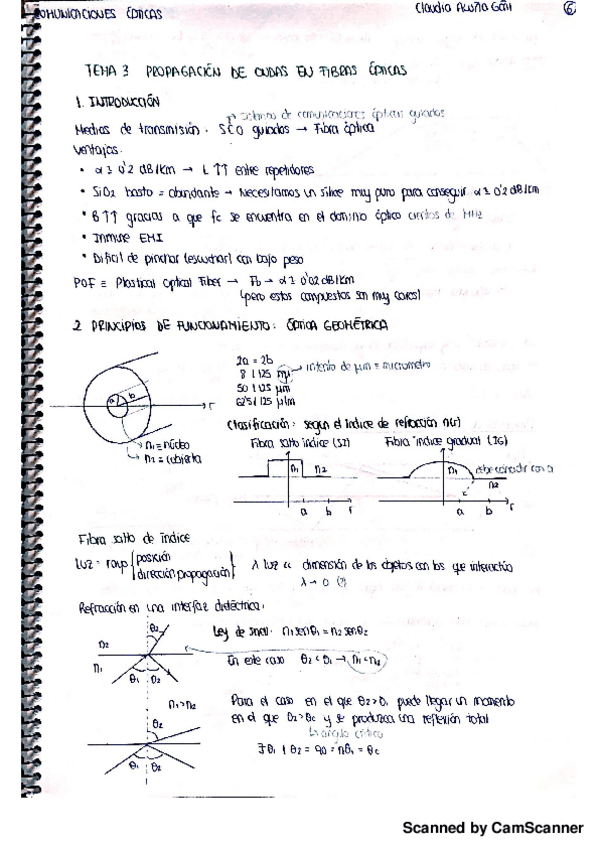 COMUNICACIONES ÓPTICAS
Claudia Acuña Gañi
6
TEMA 3 PROPAGACIÓN DE ONDAS EN FIBRAS ÓPTICAS
1. INTRODUCCIÓN
sistemas de comunicaciones ópticas guiados
Medios de transmisión. SCO guiados → Fibra óptica
Ventajas.
• α ≥ 0'2 dB/Km → L ↑↑ entre repetidores
• SiO2 basto = abundante → Necesitamos un sílice muy puro para conseguir α ≥ 0'2 dB/Km
• B↑↑ gracias a que fc se encuentra en el dominio óptico cientos de MHz
• Inmune EMI
• Difícil de pinchar (escuchar) con bajo peso
POF ≡ Plastical Optical Fiber → Fb → α ≥ 0'02 dB/Km
(pero estos compuestos son muy caros)
2. PRINCIPIOS DE FUNCIONAMIENTO: ÓPTICA GEOMÉTRICA
2a = 2b
8 / 125 mμ → intento de μm = micrómetro
50 / 125 μm
62'5 / 125 μm
a b r
n1 = núcleo
n2 = cubierta
Clasificación: según el índice de refracción n(r)
Fibra salto índice (SI) Fibra índice gradual (IG)
n1 n2
n1 debe coincidir con a
n2
a b r
a b r
Fibra salto de índice
Luz = rayo { posición
dirección propagación } λ luz << dimensión de los objetos con los que interactúa
λ → 0 (?)
Refracción en una interfaz dieléctrica:
θ2
n2
n1
θ1 θ2
Ley de Snell: n1 senθ1 = n2 senθ2
En este caso θ2 < θ1 → n1 < n2
n1 > n2
θ2
θ1 θ2
Para el caso en el que θ2 > θ1 puede llegar un momento
en el que θ2 > θc y se produzca una reflexión total
ángulo crítico
∃ θ1 / θ2 = 90 = nθ1 = θc
Scanned by CamScanner